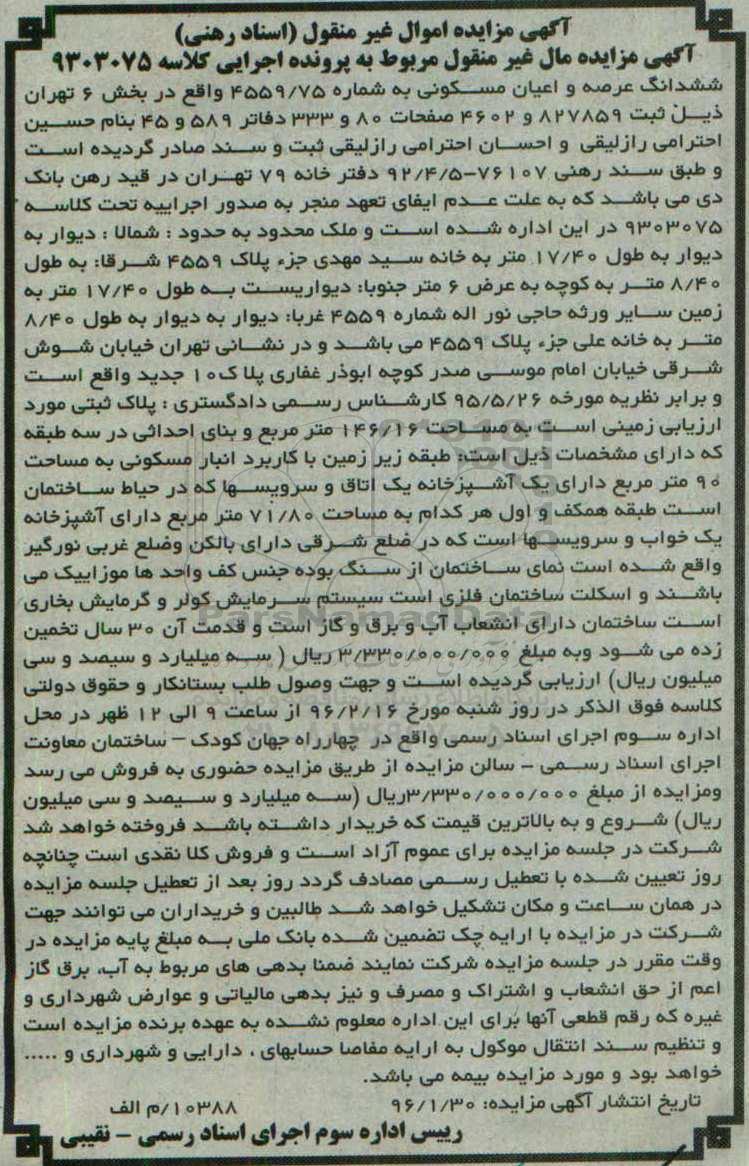 آگهی مزایده اموال غیر منقول (اسناد رهنی)
آگهی مزایده مال غیر منقول مربوط به پرونده اجرایی کلاسه ۹۳۰۳۰۷۵
ششدانگ عرصه و اعیان مسکونی به شماره ۴۵۵۹/۷۵ واقع در بخش ۶ تهران
ذیل ثبت ۸۲۷۸۵۹ و ۴۶۰۲ صفحات ۸۰ و ۳۳۳ دفاتر ۵۸۹ و ۴۵ بنام حسین
احترامی رازلیقی و احسان احترامی رازلیقی ثبت و سند صادر گردیده است
و طبق سند رهنی ۷۶۱۰۷-۹۲/۴/۵ دفتر خانه ۷۹ تهران در قید رهن بانک
دی می باشد که به علت عدم ایفای تعهد منجر به صدور اجراییه تحت کلاسه
۹۳۰۳۰۷۵ در این اداره شده است و ملک محدود به حدود : شمالا : دیوار به
دیوار به طول ۱۷/۴۰ متر به خانه سید مهدی جزء پلاک ۴۵۵۹ شرقا: به طول
۸/۴۰ متر به کوچه به عرض ۶ متر جنوبا: دیواریست به طول ۱۷/۴۰ متر به
زمین سایر ورثه حاجی نور اله شماره ۴۵۵۹ غربا: دیوار به دیوار به طول ۸/۴۰
متر به خانه علی جزء پلاک ۴۵۵۹ می باشد و در نشانی تهران خیابان شوش
شرقی خیابان امام موسی صدر کوچه ابوذر غفاری پلا ک۱۰ جدید واقع است
و برابر نظریه مورخه ۹۵/۵/۲۶ کارشناس رسمی دادگستری : پلاک ثبتی مورد
ارزیابی زمینی است به مساحت ۱۴۶/۱۶ متر مربع و بنای احداثی در سه طبقه
که دارای مشخصات ذیل است: طبقه زیر زمین با کاربرد انبار مسکونی به مساحت
۹۰ متر مربع دارای یک آشپزخانه یک اتاق و سرویسها که در حیاط ساختمان
است طبقه همکف و اول هر کدام به مساحت ۷۱/۸۰ متر مربع دارای آشپزخانه
یک خواب و سرویسها است که در ضلع شرقی دارای بالکن وضلع غربی نورگیر
واقع شده است نمای ساختمان از سنگ بوده جنس کف واحد ها موزاییک می
باشند و اسکلت ساختمان فلزی است سیستم سرمایش کولر و گرمایش بخاری
است ساختمان دارای انشعاب آب و برق و گاز است و قدمت آن ۳۰ سال تخمین
زده می شود وبه مبلغ ۳/۳۳۰/۰۰۰/۰۰۰ ریال ( سه میلیارد و سیصد و سی
میلیون ریال) ارزیابی گردیده است و جهت وصول طلب بستانکار و حقوق دولتی
کلاسه فوق الذکر در روز شنبه مورخ ۹۶/۲/۱۶ از ساعت ۹ الی ۱۲ ظهر در محل
اداره سوم اجرای اسناد رسمی واقع در چهارراه جهان کودک – ساختمان معاونت
اجرای اسناد رسمی – سالن مزایده از طریق مزایده حضوری به فروش می رسد
ومزایده از مبلغ ۳/۳۳۰/۰۰۰/۰۰۰ریال (سه میلیارد و سیصد و سی میلیون
ریال) شروع و به بالاترین قیمت که خریدار داشته باشد فروخته خواهد شد
شرکت در جلسه مزایده برای عموم آزاد است و فروش کلا نقدی است چنانچه
روز تعیین شده با تعطیل رسمی مصادف گردد روز بعد از تعطیل جلسه مزایده
در همان ساعت و مکان تشکیل خواهد شد طالبین و خریداران می توانند جهت
شرکت در مزایده با ارایه چک تضمین شده بانک ملی به مبلغ پایه مزایده در
وقت مقرر در جلسه مزایده شرکت نمایند ضمنا بدهی های مربوط به آب، برق گاز
اعم از حق انشعاب و اشتراک و مصرف و نیز بدهی مالیاتی و عوارض شهرداری و
غیره که رقم قطعی آنها برای این اداره معلوم نشده به عهده برنده مزایده است
و تنظیم سند انتقال موکول به ارایه مفاصا حسابهای ، دارایی و شهرداری و .....
خواهد بود و مورد مزایده بیمه می باشد.
تاریخ انتشار آگهی مزایده: ۹۶/۱/۳۰ ۱۰۳۸۸/م الف
رییس اداره سوم اجرای اسناد رسمی – نقیبی